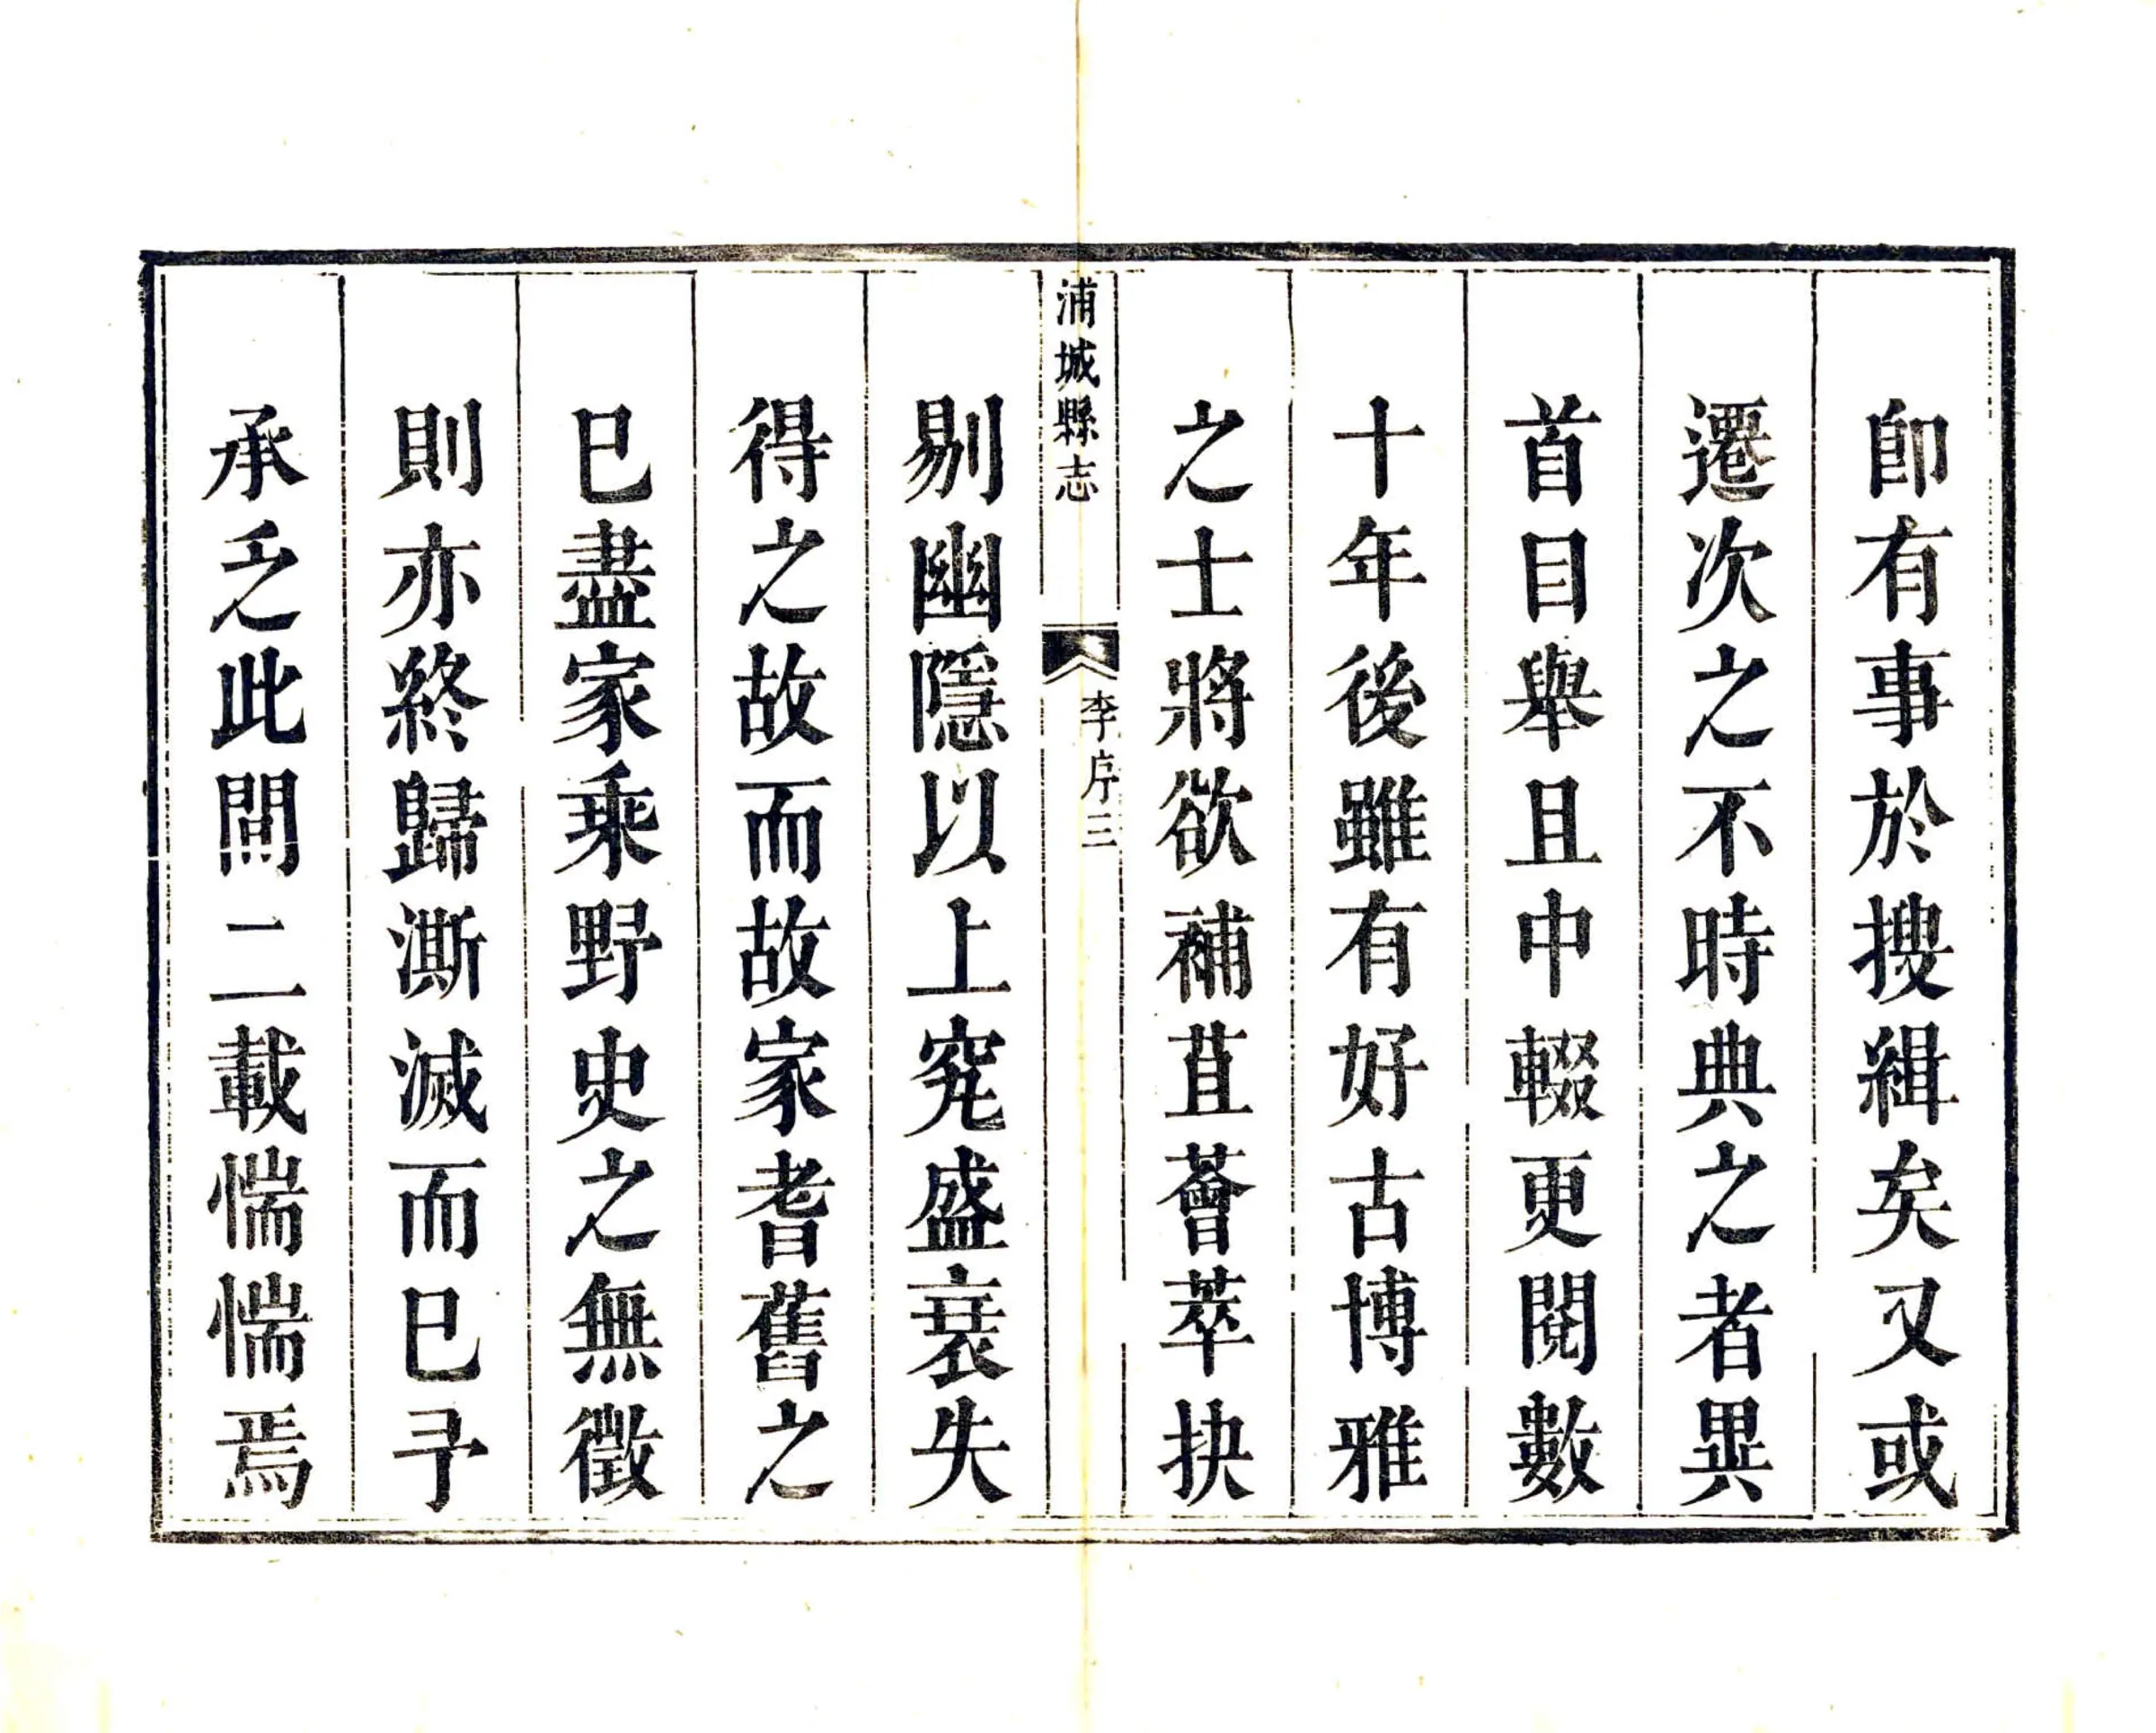 卽有事於搜緝矣又或
遷次之不時典之者異
首目舉且中輟更閱數
十年後雖有好古博雅
之士將欲補苴薈萃抉
浦城縣志
李序三
剔幽隱以上究盛衰失
得之故而故家耆舊之
已盡家乘野史之無徵
則亦終歸澌滅而已予
承乏此間二載惴惴焉